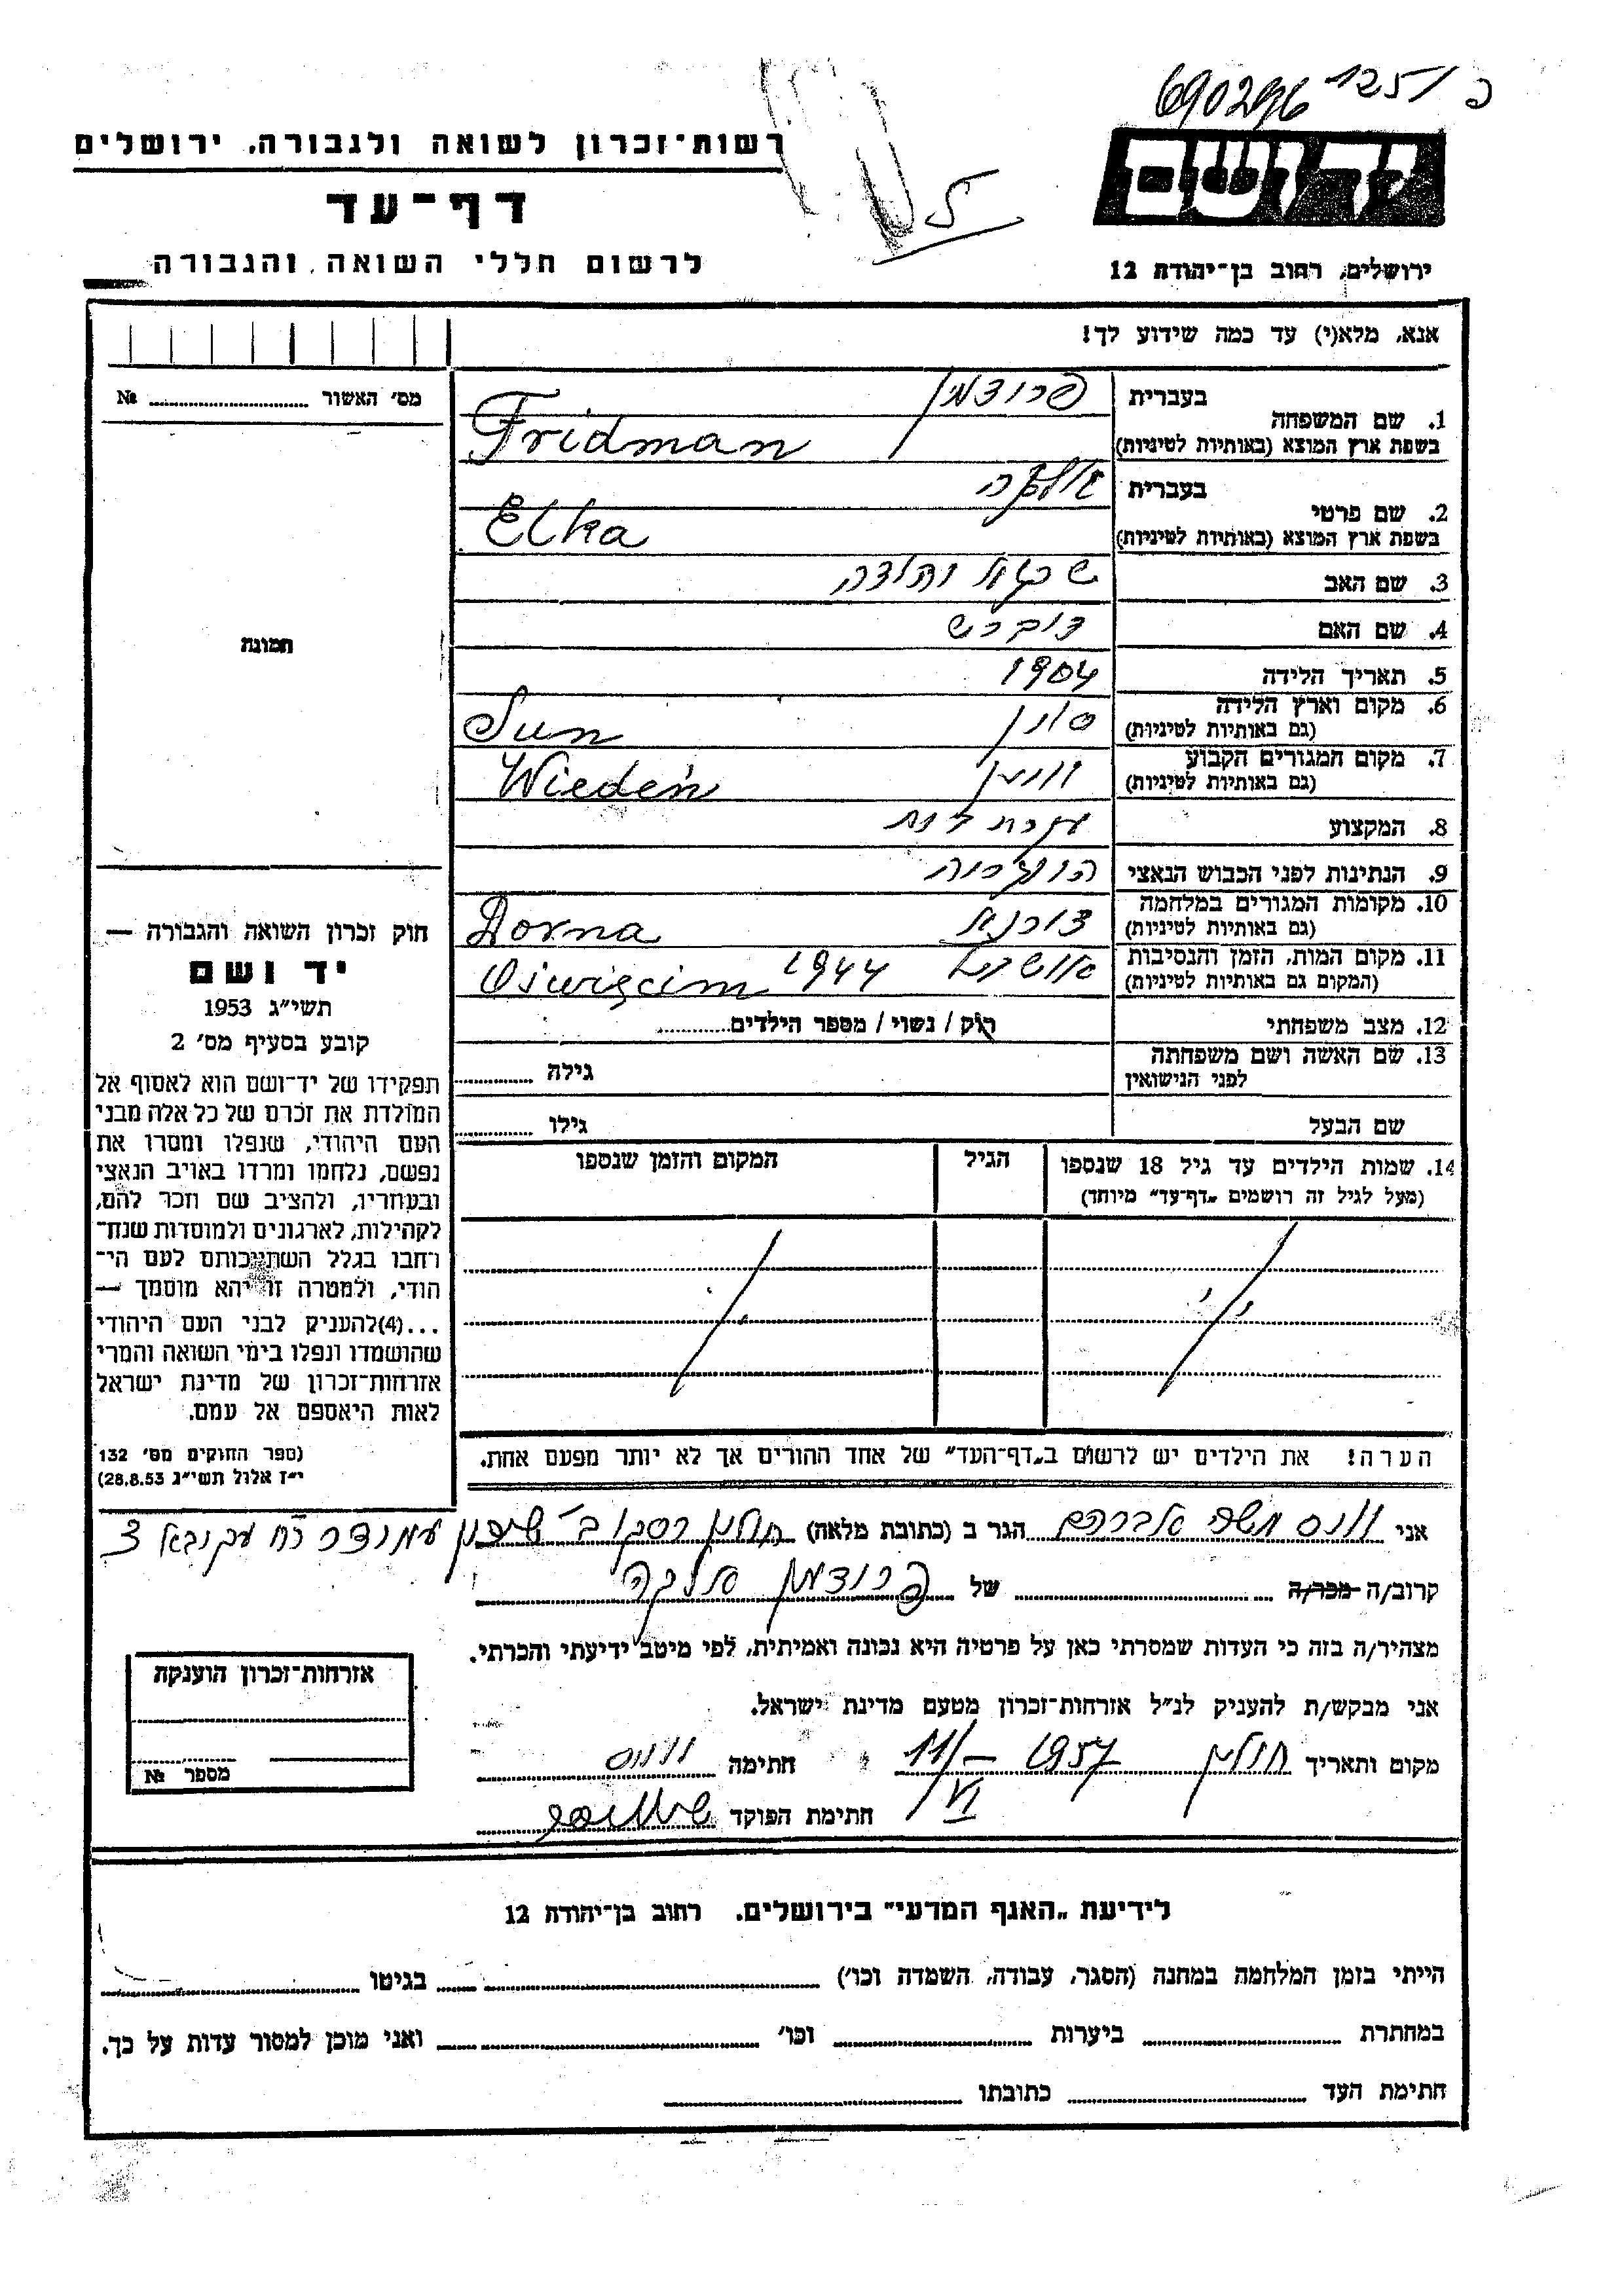 690296 1251 פ
רשות־זכרון לשואה ולגבורה, ירושלים
יד ושם
דף־עד
5
לרשום חללי השואה והגבורה
ירושלים, רחוב בן־יהודה 12
אנא, מלא(י) עד כמה שידוע לך!
מס׳ האשור №
תמונה
1. שם המשפחה
בעברית פרידמן
בשפת ארץ המוצא (באותיות לטיניות) Fridman
2. שם פרטי
בעברית אלקה
בשפת ארץ המוצא (באותיות לטיניות) Elka
3. שם האב יהודה
4. שם האם דוברש
5. תאריך הלידה 1904
6. מקום וארץ הלידה
(גם באותיות לטיניות) סון Sun
7. מקום המגורים הקבוע
(גם באותיות לטיניות) ווידן Wiedeń
8. המקצוע עקרת בית
9. הנתינות לפני הכבוש הנאצי הונגריה
10. מקומות המגורים במלחמה
(גם באותיות לטיניות) דורנא Dorna
11. מקום המות, הזמן והנסיבות
(המקום גם באותיות לטיניות) 1944 Oświęcim
12. מצב משפחתי רווק / נשוי / מספר הילדים
13. שם האשה ושם משפחתה
לפני הנישואין גילה
שם הבעל גילו
14. שמות הילדים עד גיל 18 שנספו
(מעל לגיל זה רושמים „דף־עד״ מיוחד)
הגיל
המקום והזמן שנספו
חוק זכרון השואה והגבורה —
יד ושם
תשי״ג 1953
קובע בסעיף מס׳ 2
תפקידו של יד־ושם הוא לאסוף אל
המולדת את זכרם של כל אלה מבני
העם היהודי, שנפלו ומסרו את
נפשם, נלחמו ומרדו באויב הנאצי
ובעוזריו, ולהציב שם וזכר להם,
לקהילות, לארגונים ולמוסדות שנח־
רבו בגלל השתייכותם לעם הי־
הודי, ולמטרה זו יהא מוסמך —
...(4)להעניק לבני העם היהודי
שהושמדו ונפלו בימי השואה והמרי
אזרחות־זכרון של מדינת ישראל
לאות היאספם אל עמם.
(ספר החוקים מס׳ 132
י״ז אלול תשי״ג 28.8.53)
הערה! את הילדים יש לרשום ב„דף־העד״ של אחד ההורים אך לא יותר מפעם אחת.
אני ווייס משה אברהם הגר ב (כתובת מלאה) חולון
קרוב/ה מכר/ה של פרידמן אלקה
מצהיר/ה בזה כי העדות שמסרתי כאן על פרטיה היא נכונה ואמיתית, לפי מיטב ידיעתי והכרתי.
אני מבקש/ת להעניק לנ״ל אזרחות־זכרון מטעם מדינת ישראל.
מקום ותאריך חולון 1957 11/VI חתימה ווייס
חתימת הפוקד
אזרחות־זכרון הוענקה
מספר №
לידיעת „האגף המדעי״ בירושלים, רחוב בן־יהודה 12
הייתי בזמן המלחמה במחנה (הסגר, עבודה, השמדה וכו׳) בגיטו
במחתרת ביערות וכו׳ ואני מוכן למסור עדות על כך.
חתימת העד כתובתו